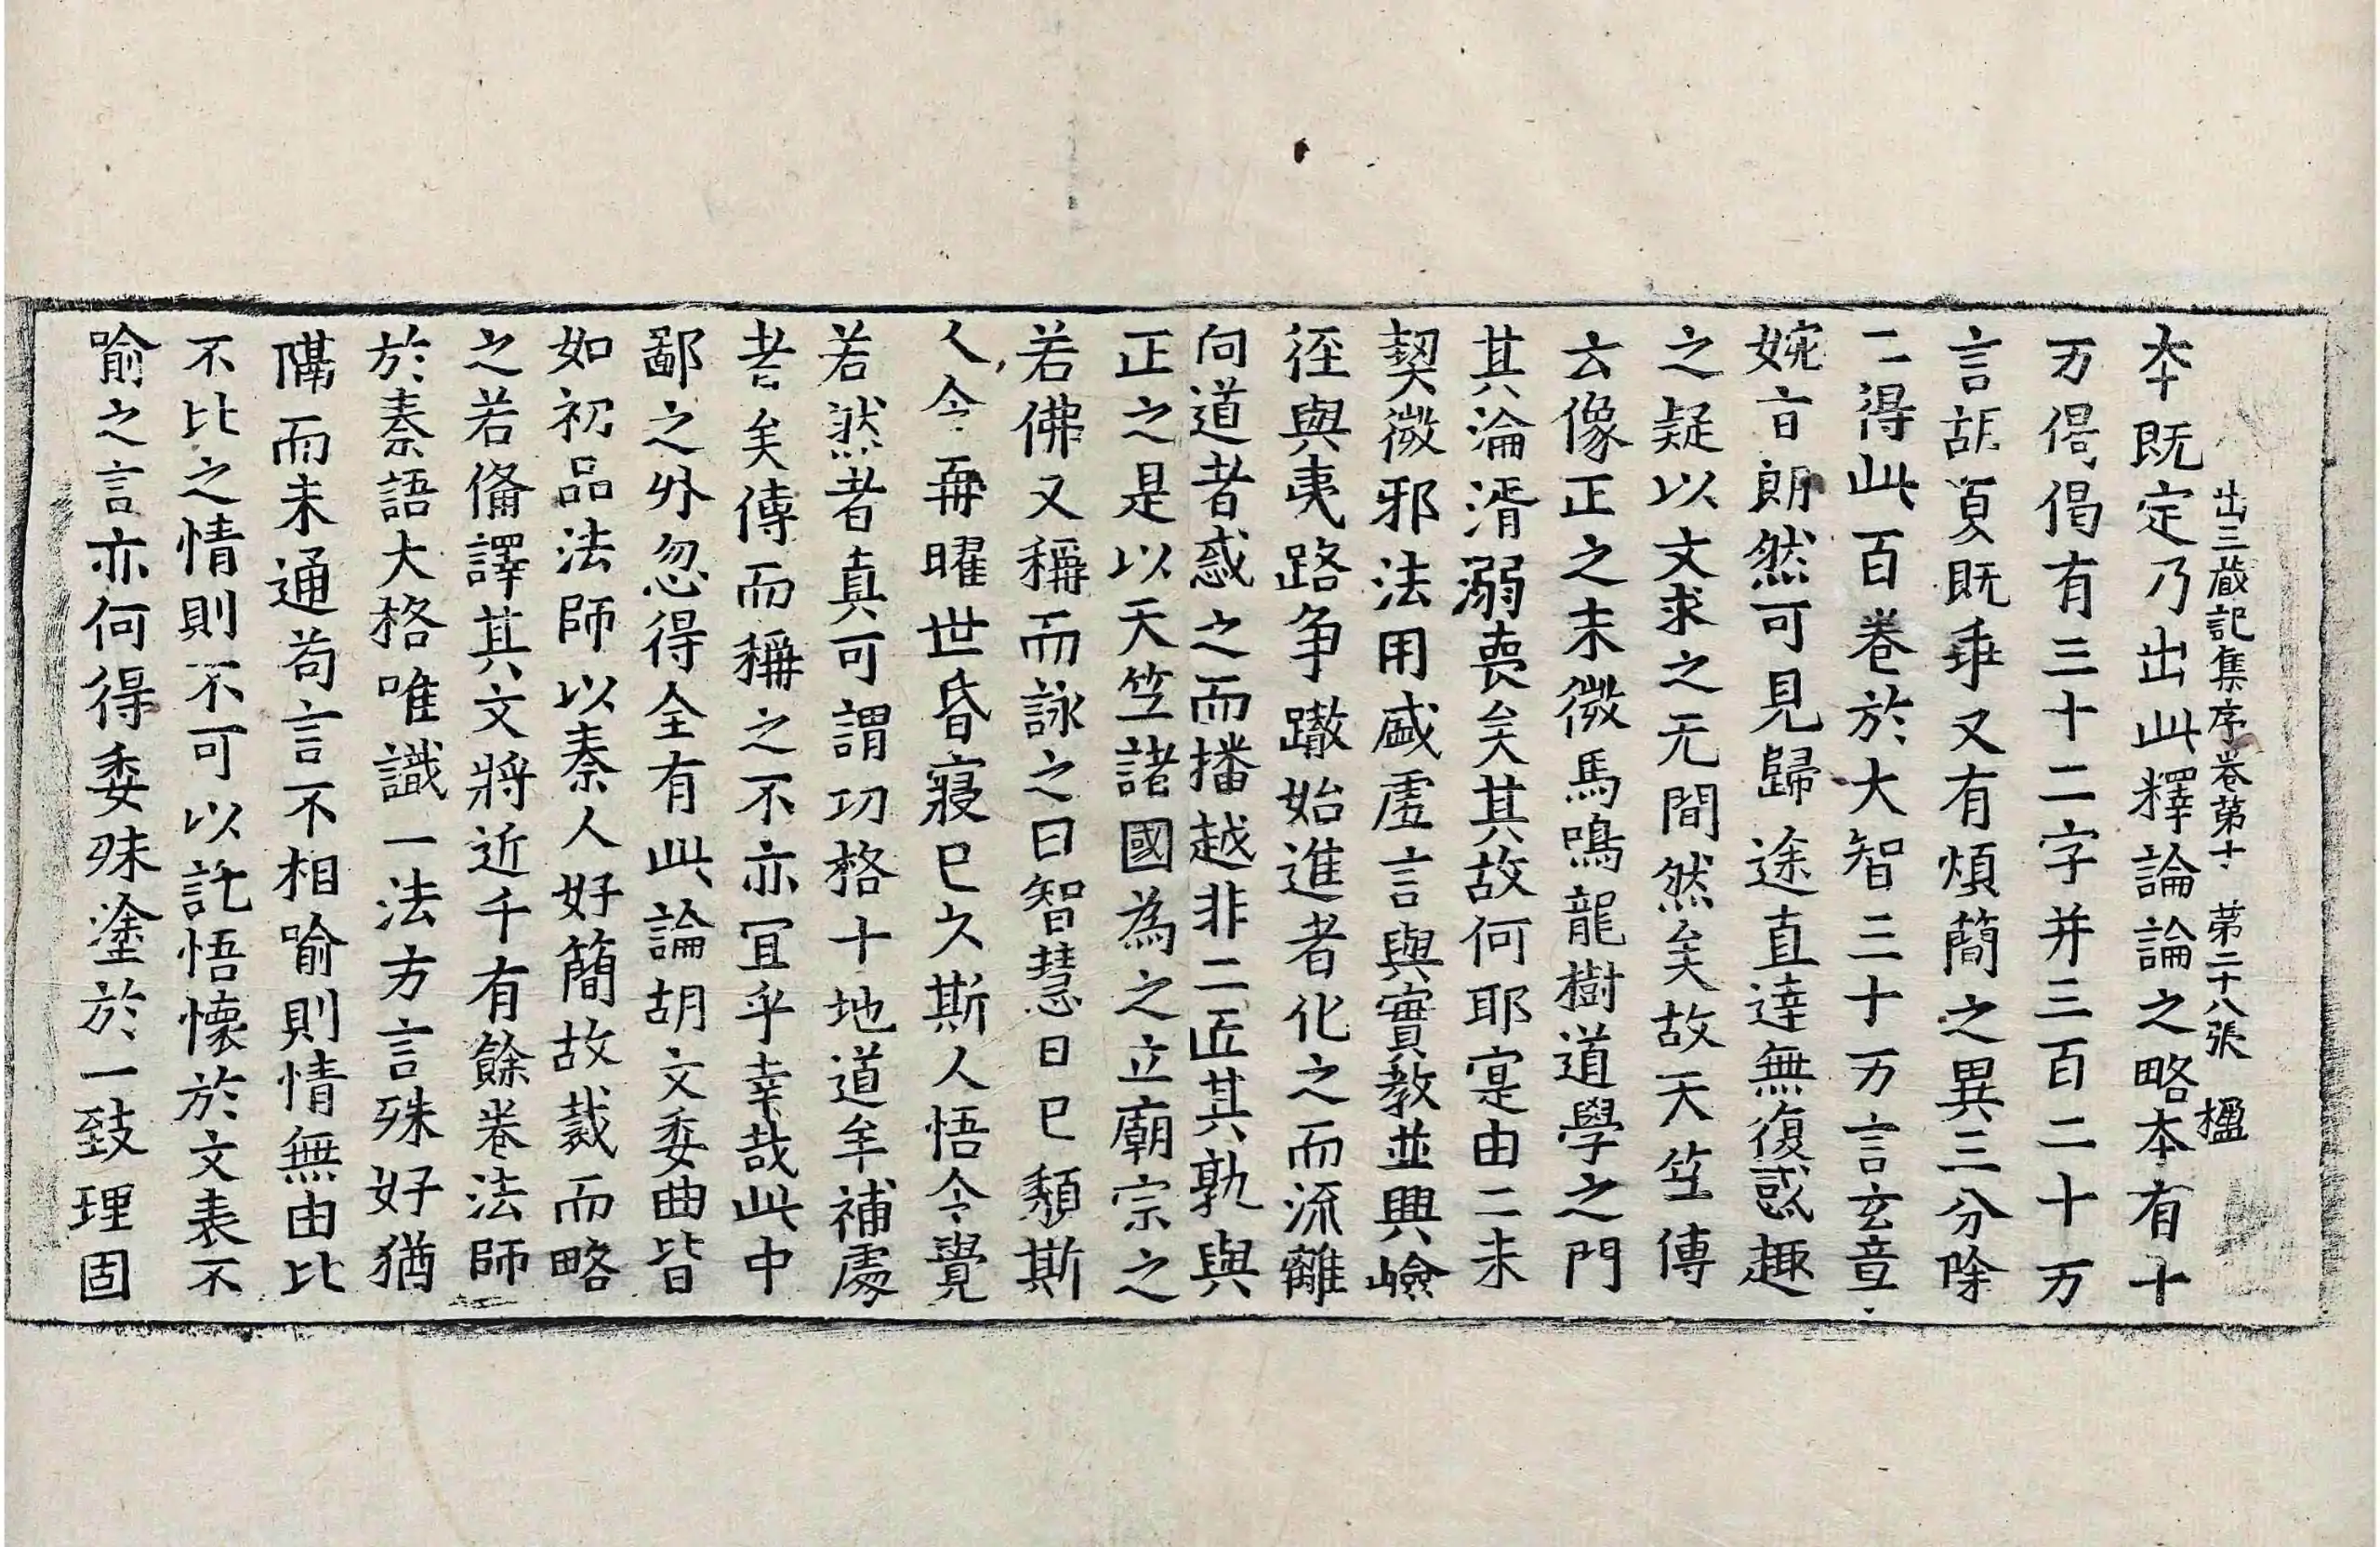 出三藏記集序卷第十　第二十八張　楹
本既定乃出此釋論論之略本有十
万偈偈有三十二字并三百二十万
言胡夏既乖又有煩簡之異三分除
二得此百卷於大智三十万言玄章
婉旨朗然可見歸途直達無復惑趣
之疑以文求之无間然矣故天竺傳
云像正之末微馬鳴龍樹道學之門
其淪湑溺喪矣其故何耶寔由二未
契微邪法用盛虛言與實教並興嶮
徑與夷路争轍始進者化之而流離
向道者惑之而播越非二匠其孰與
正之是以天竺諸國為之立廟宗之
若佛又稱而詠之曰智慧日已頹斯
人令再曜世昏寢已久斯人悟令覺
若然者真可謂功格十地道牟補處
者矣傳而稱之不亦冝乎幸哉此中
鄙之外忽得全有此論胡文委曲皆
如初品法師以秦人好簡故裁而略
之若俻譯其文將近千有餘卷法師
於秦語大格唯識一法方言殊好猶
隔而未通苟言不相喻則情無由比
不比之情則不可以託悟懷於文表不
喻之言亦何得委殊塗於一致理固